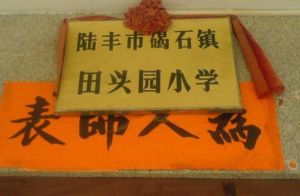 陆丰市碣石镇
田头园小学
為人師表